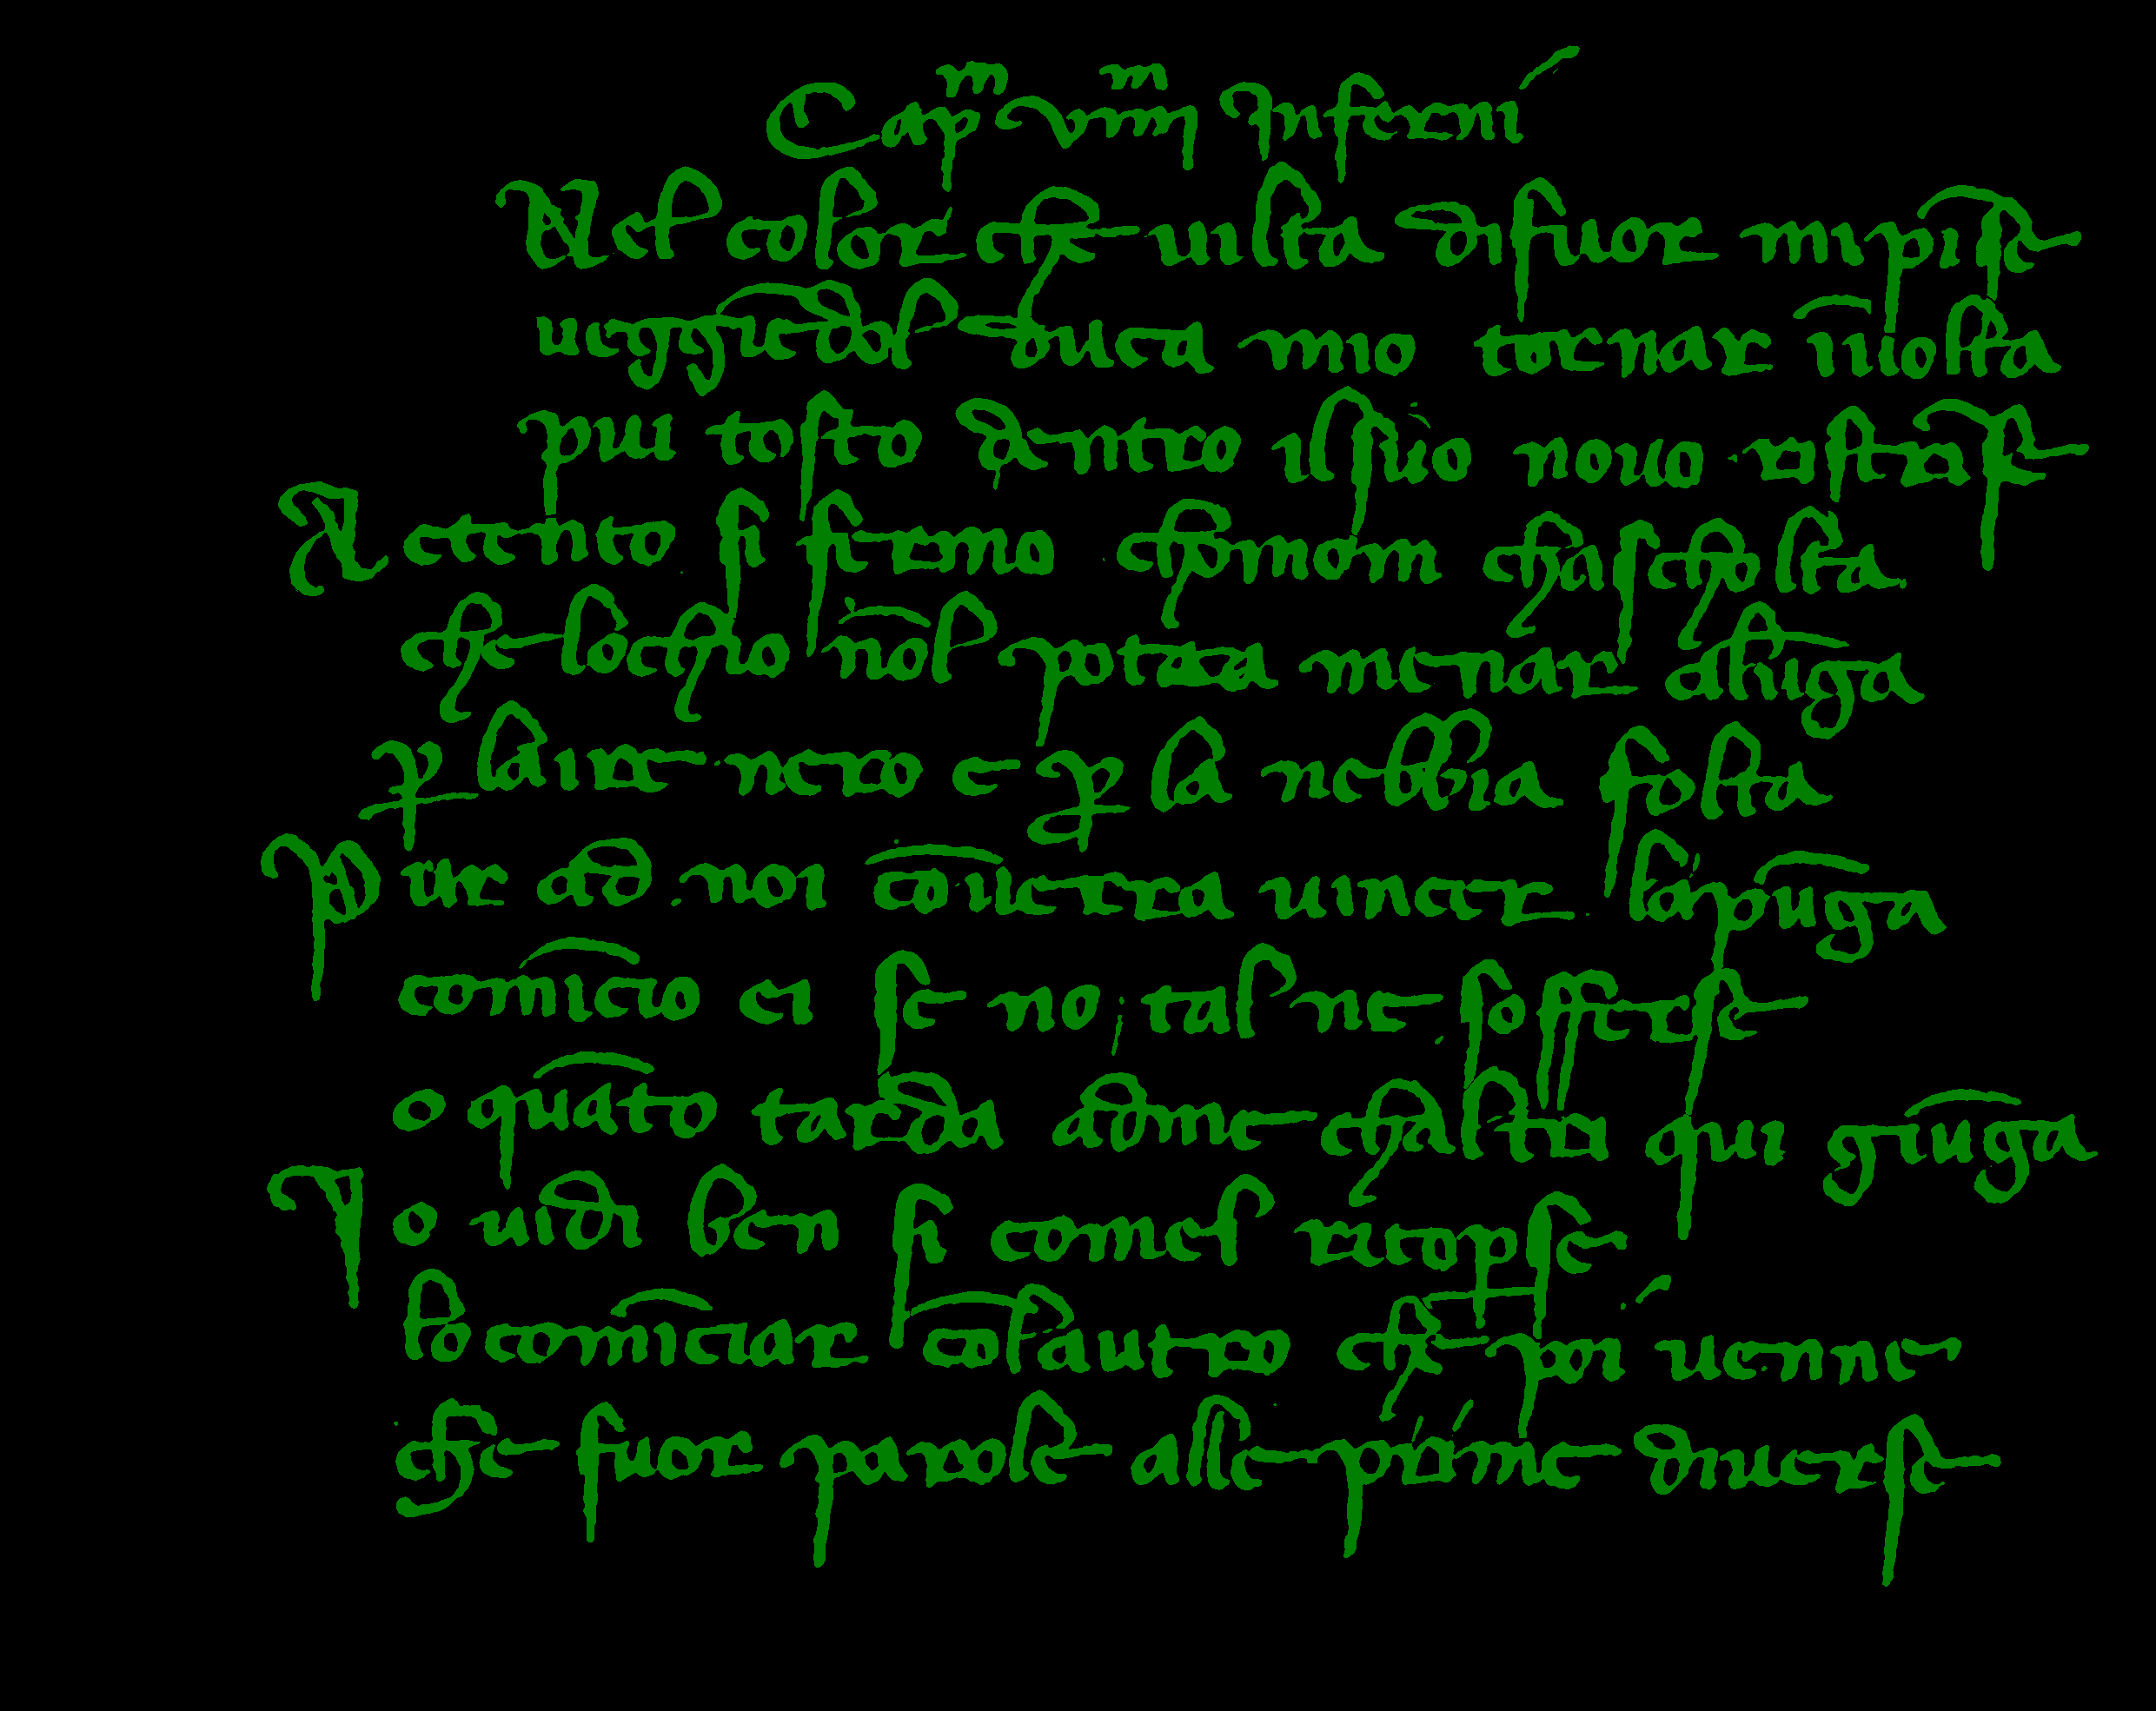 Capm viiiim Inferni
Quel color che uilta di fuor mi pinse
ueggiedol duca mio tornar i uolta
piu tosto dentro il suo nouo ristrinse
Attento si fermo chomom chascholta
che lochio nol potea menar alũga
p laire nero e p la nebbia folta
Pur ad noi cõuerra uincer la pũga
comĩcio ei se no tal ne sofferse
o quãto tarda adme chaltri qui giũga
Io uidi ben si comel ricoprse
lo comĩciar cõ laltro che poi uenne
che fuor parole alle prime diuerse